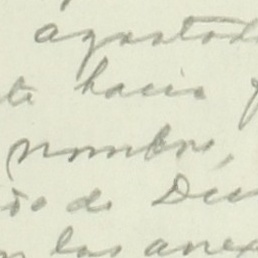 agostad
te hacia
nombre,
do de Dic
n los anex